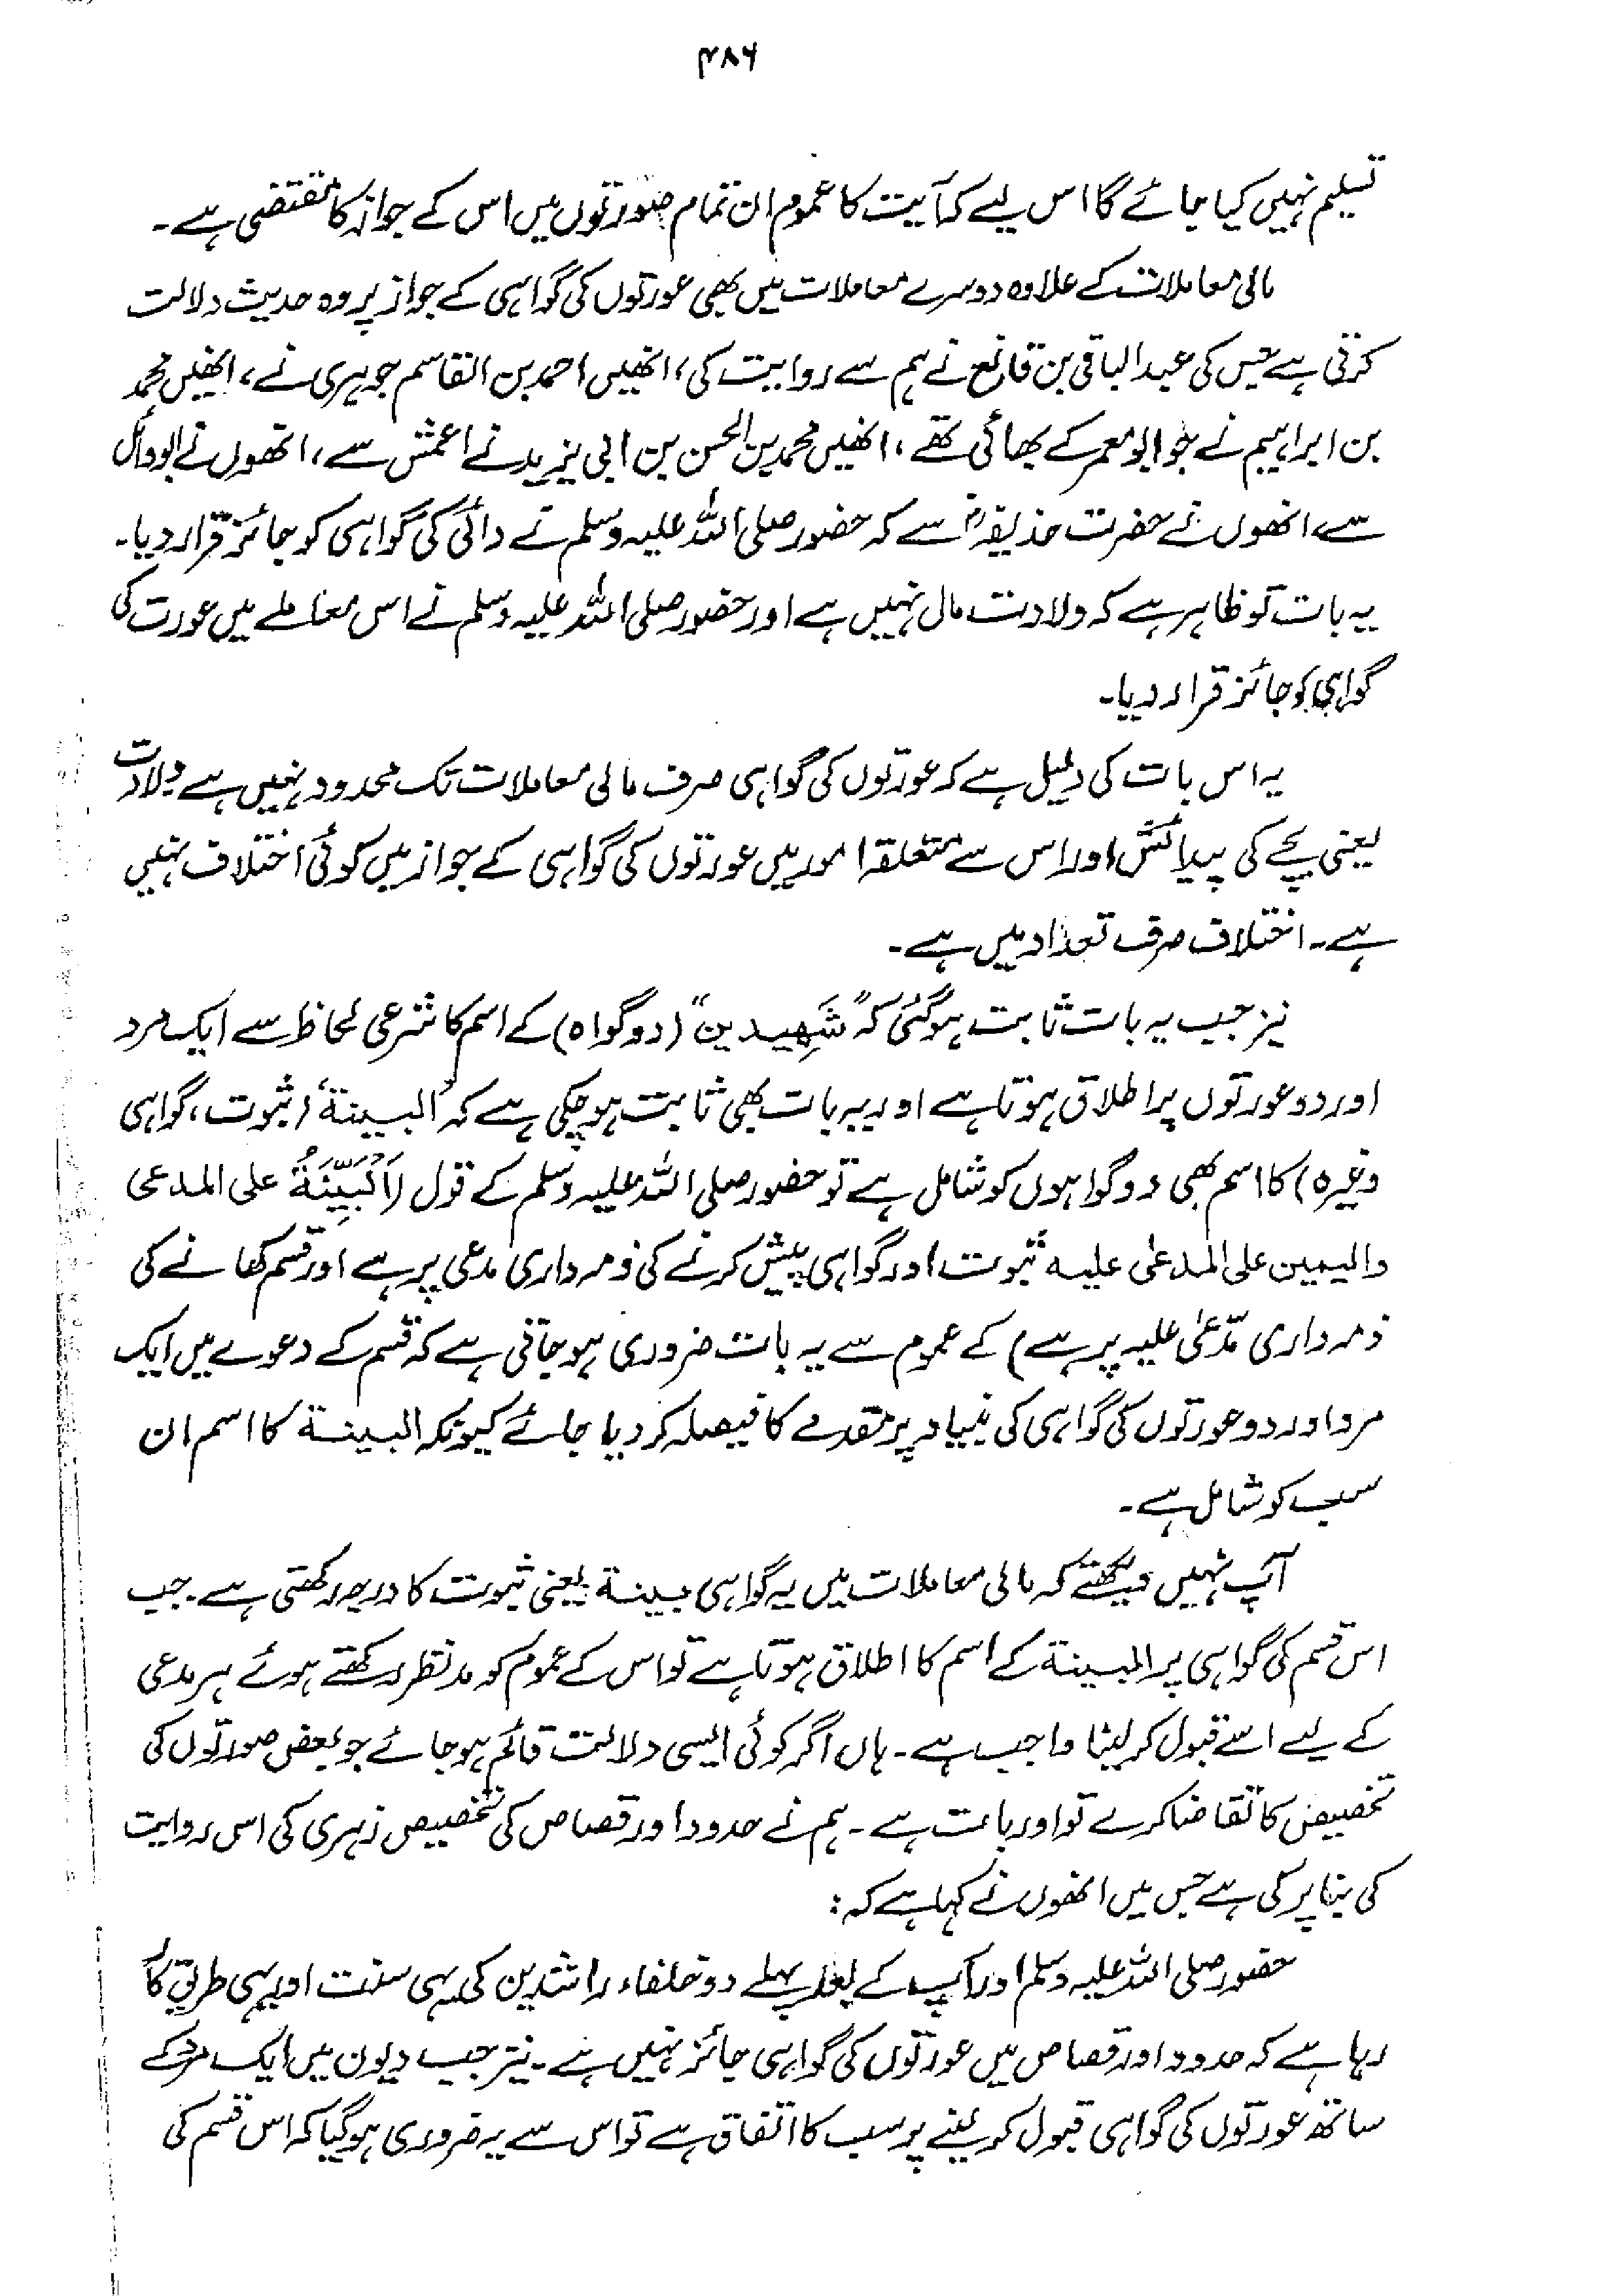 ۴۸۶
تسلیم نہیں کیا جائے گا اس لیے کہ آیت کا عموم ان تمام صورتوں میں اس کے جواز کا مقتضی ہے۔
مالی معاملات کے علاوہ دوسرے معاملات میں بھی عورتوں کی گواہی کے جواز پر وہ حدیث دلالت
کرتی ہے جس کی عبدالباقی بن قانع نے ہم سے روایت کی، انھیں احمد بن القاسم جوہری نے، انھیں محمد
بن ابراہیم نے جو ابو معمر کے بھائی تھے، انھیں محمد بن الحسن بن ابی یزید نے اعمش سے، انھوں نے ابو وائل
سے انھوں نے حضرت حذیفہؓ سے کہ حضور صلی اللہ علیہ وسلم نے دائی کی گواہی کو جائز قرار دیا۔
یہ بات تو ظاہر ہے کہ ولادت مال نہیں ہے اور حضور صلی اللہ علیہ وسلم نے اس معاملے میں عورت کی
گواہی کو جائز قرار دیا۔
یہ اس بات کی دلیل ہے کہ عورتوں کی گواہی صرف مالی معاملات تک محدود نہیں ہے ولادت
یعنی بچے کی پیدائش اور اس سے متعلقہ امور میں عورتوں کی گواہی کے جواز میں کوئی اختلاف نہیں
ہے۔ اختلاف صرف تعداد میں ہے۔
نیز جب یہ بات ثابت ہو گئی کہ "شَهِيدين" (دو گواہ) کے اسم کا شرعی لحاظ سے ایک مرد
اور دو عورتوں پر اطلاق ہوتا ہے اور یہ بات بھی ثابت ہو چکی ہے کہ 'البينة' (ثبوت، گواہی
وغیرہ) کا اسم بھی دو گواہوں کو شامل ہے تو حضور صلی اللہ علیہ وسلم کے قول (اَلْبَيِّنَةُ على المدعى
واليمين على المدعىٰ عليه ثبوت اور گواہی پیش کرنے کی ذمہ داری مدعی پر ہے اور قسم کھانے کی
ذمہ داری مدّعیٰ علیہ پر ہے) کے عموم سے یہ بات ضروری ہو جاتی ہے کہ قسم کے دعوے میں ایک
مرد اور دو عورتوں کی گواہی کی بنیاد پر مقدمے کا فیصلہ کر دیا جائے کیونکہ البينة کا اسم ان
سب کو شامل ہے۔
آپ نہیں دیکھتے کہ مالی معاملات میں یہ گواہی بينة یعنی ثبوت کا درجہ رکھتی ہے۔ جب
اس قسم کی گواہی پر البينة کے اسم کا اطلاق ہوتا ہے تو اس کے عموم کو مدنظر رکھتے ہوئے ہر مدعی
کے لیے اسے قبول کر لینا واجب ہے۔ ہاں اگر کوئی ایسی دلالت قائم ہو جائے جو بعض صورتوں کی
تخصیص کا تقاضا کرے تو اور بات ہے۔ ہم نے حدود اور قصاص کی تخصیص زہری کی اس روایت
کی بنا پر کی ہے جس میں انھوں نے کہا ہے کہ:
حضور صلی اللہ علیہ وسلم اور آپ کے بعد پہلے دو خلفاء راشدین کی یہی سنت اور یہی طریق کار
رہا ہے کہ حدود اور قصاص میں عورتوں کی گواہی جائز نہیں ہے۔ نیز جب دیون میں ایک مرد کے
ساتھ عورتوں کی گواہی قبول کر لینے پر سب کا اتفاق ہے تو اس سے یہ ضروری ہو گیا کہ اس قسم کی